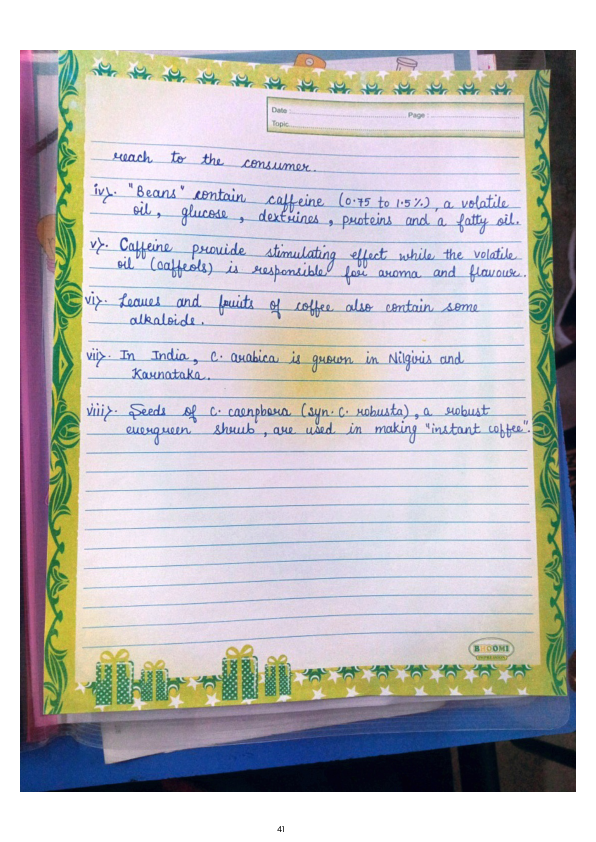 Date : Page :
Topic
reach to the consumer.
iv). "Beans" contain caffeine (0.75 to 1.5%), a volatile
oil, glucose, dextrines, proteins and a fatty oil.
v). Caffeine provide stimulating effect while the volatile
oil (caffeols) is responsible for aroma and flavour.
vi). Leaves and fruits of coffee also contain some
alkaloids.
vii). In India, C. arabica is grown in Nilgiris and
Karnataka.
viii). Seeds of C. caenphora (syn. C. robusta), a robust
evergreen shrub, are used in making "instant coffee".
BHOOMI
41